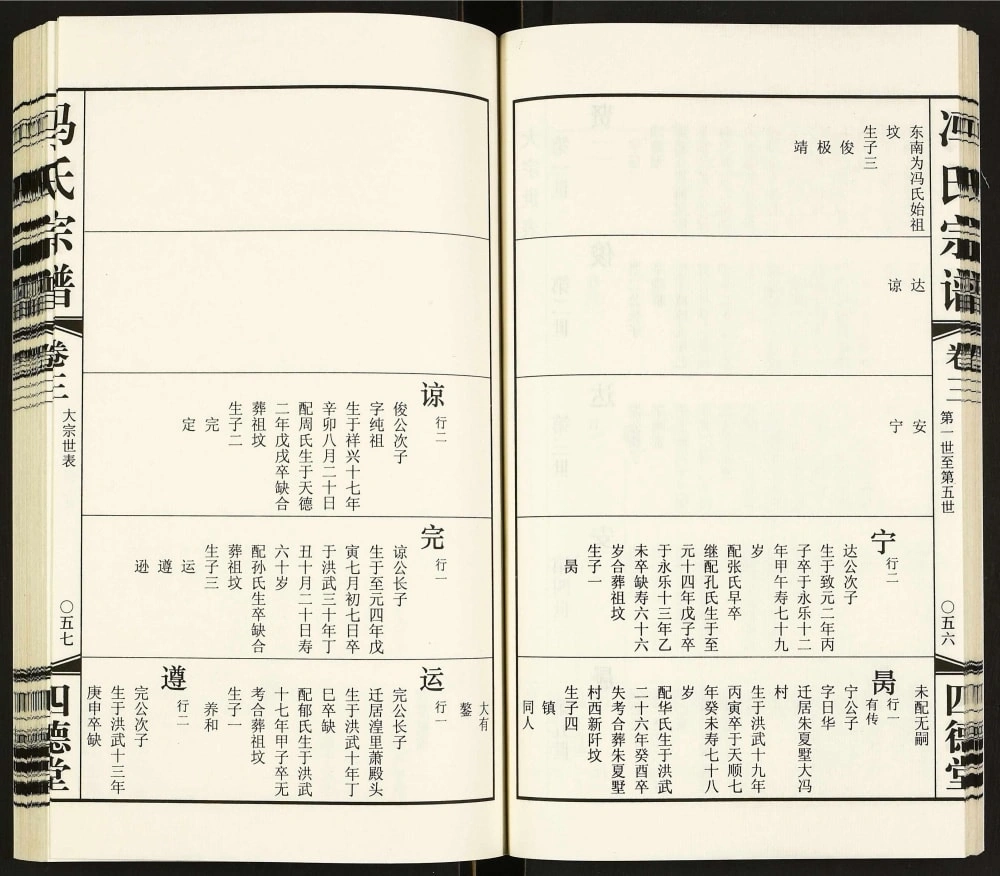 冯氏宗谱
卷三
第一世至第五世
〇五六
四德堂
东南为冯氏始祖
坟
生子三
俊
极
靖
达
谅
安
宁
宁
行二
达公次子
生于致元二年丙
子卒于永乐十二
年甲午寿七十九
岁
配张氏早卒
继配孔氏生于至
元十四年戊子卒
于永乐十三年乙
未卒缺寿六十六
岁合葬祖坟
生子一
昺
未配无嗣
昺
行一
有传
宁公子
字日华
迁居朱夏墅大冯
村
生于洪武十九年
丙寅卒于天顺七
年癸未寿七十八
岁
配华氏生于洪武
二十六年癸酉卒
失考合葬朱夏墅
村西新阡坟
生子四
镇
同人
大有
鏊
谅
行二
俊公次子
字纯祖
生于祥兴十七年
辛卯八月二十日
配周氏生于天德
二年戊戌卒缺合
葬祖坟
生子二
完
定
完
行一
谅公长子
生于至元四年戊
寅七月初七日卒
于洪武三十年丁
丑十月二十日寿
六十岁
配孙氏生卒缺合
葬祖坟
生子三
运
遵
逊
运
行一
完公长子
迁居湟里萧殿头
生于洪武十年丁
巳卒缺
配郁氏生于洪武
十七年甲子卒无
考合葬祖坟
生子一
养和
遵
行二
完公次子
生于洪武十三年
庚申卒缺
冯氏宗谱
卷三
大宗世表
〇五七
四德堂